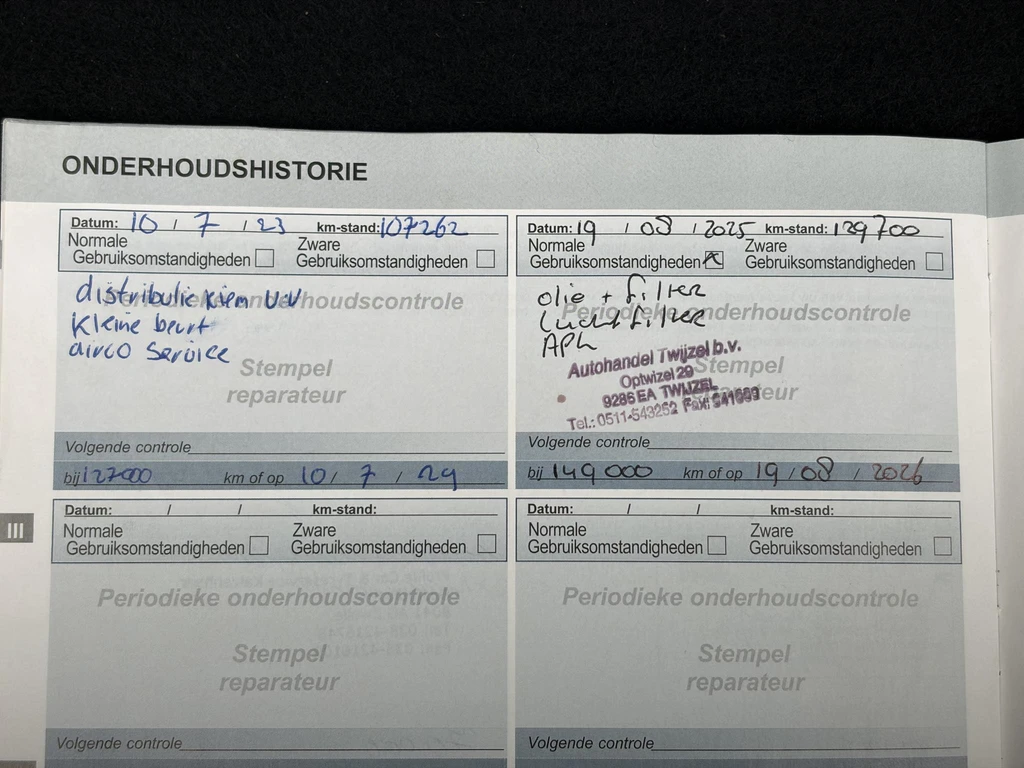 ONDERHOUDSHISTORIE
Datum: 10 / 7 / 23 km-stand: 107262
Normale
Gebruiksomstandigheden
Zware
Gebruiksomstandigheden
distributie riem V.V
Periodieke onderhoudscontrole
Kleine beurt
airco Service
Stempel
reparateur
Volgende controle
bij 127000 km of op 10 / 7 / 24
Datum: 19 / 08 / 2025 km-stand: 129700
Normale
Gebruiksomstandigheden
Zware
Gebruiksomstandigheden
olie + filter
Periodieke onderhoudscontrole
Lucht filter
APK
Stempel
reparateur
Autohandel Twijzel b.v.
Optwizel 29
9286 EA TWIJZEL
Tel.: 0511-543252 Fax:
Volgende controle
bij 149000 km of op 19 / 08 / 2026
III
Datum: / / km-stand:
Normale
Gebruiksomstandigheden
Zware
Gebruiksomstandigheden
Periodieke onderhoudscontrole
Stempel
reparateur
Volgende controle
Datum: / / km-stand:
Normale
Gebruiksomstandigheden
Zware
Gebruiksomstandigheden
Periodieke onderhoudscontrole
Stempel
reparateur
Volgende controle